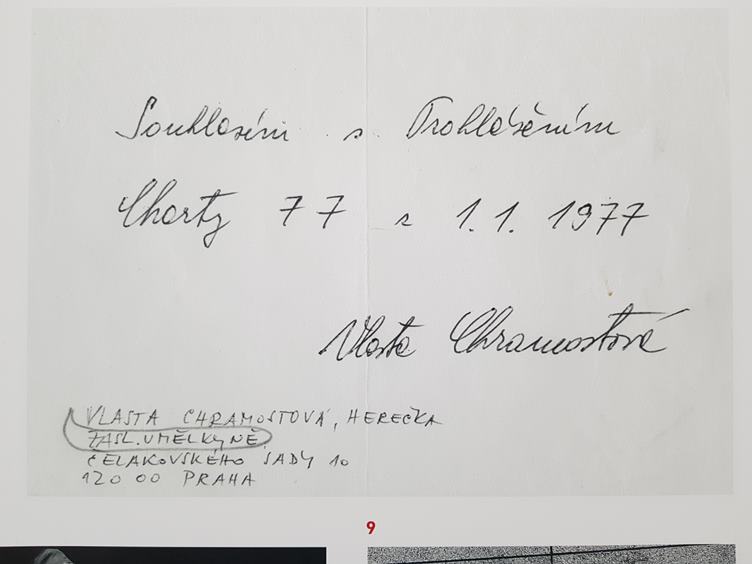 Souhlasím s Prohlášením
Charty 77 z 1.1. 1977
Vlasta Chramostová
VLASTA CHRAMOSTOVÁ, HEREČKA
ZASL. UMĚLKYNĚ
ČELAKOVSKÉHO SADY 10
120 00 PRAHA
9